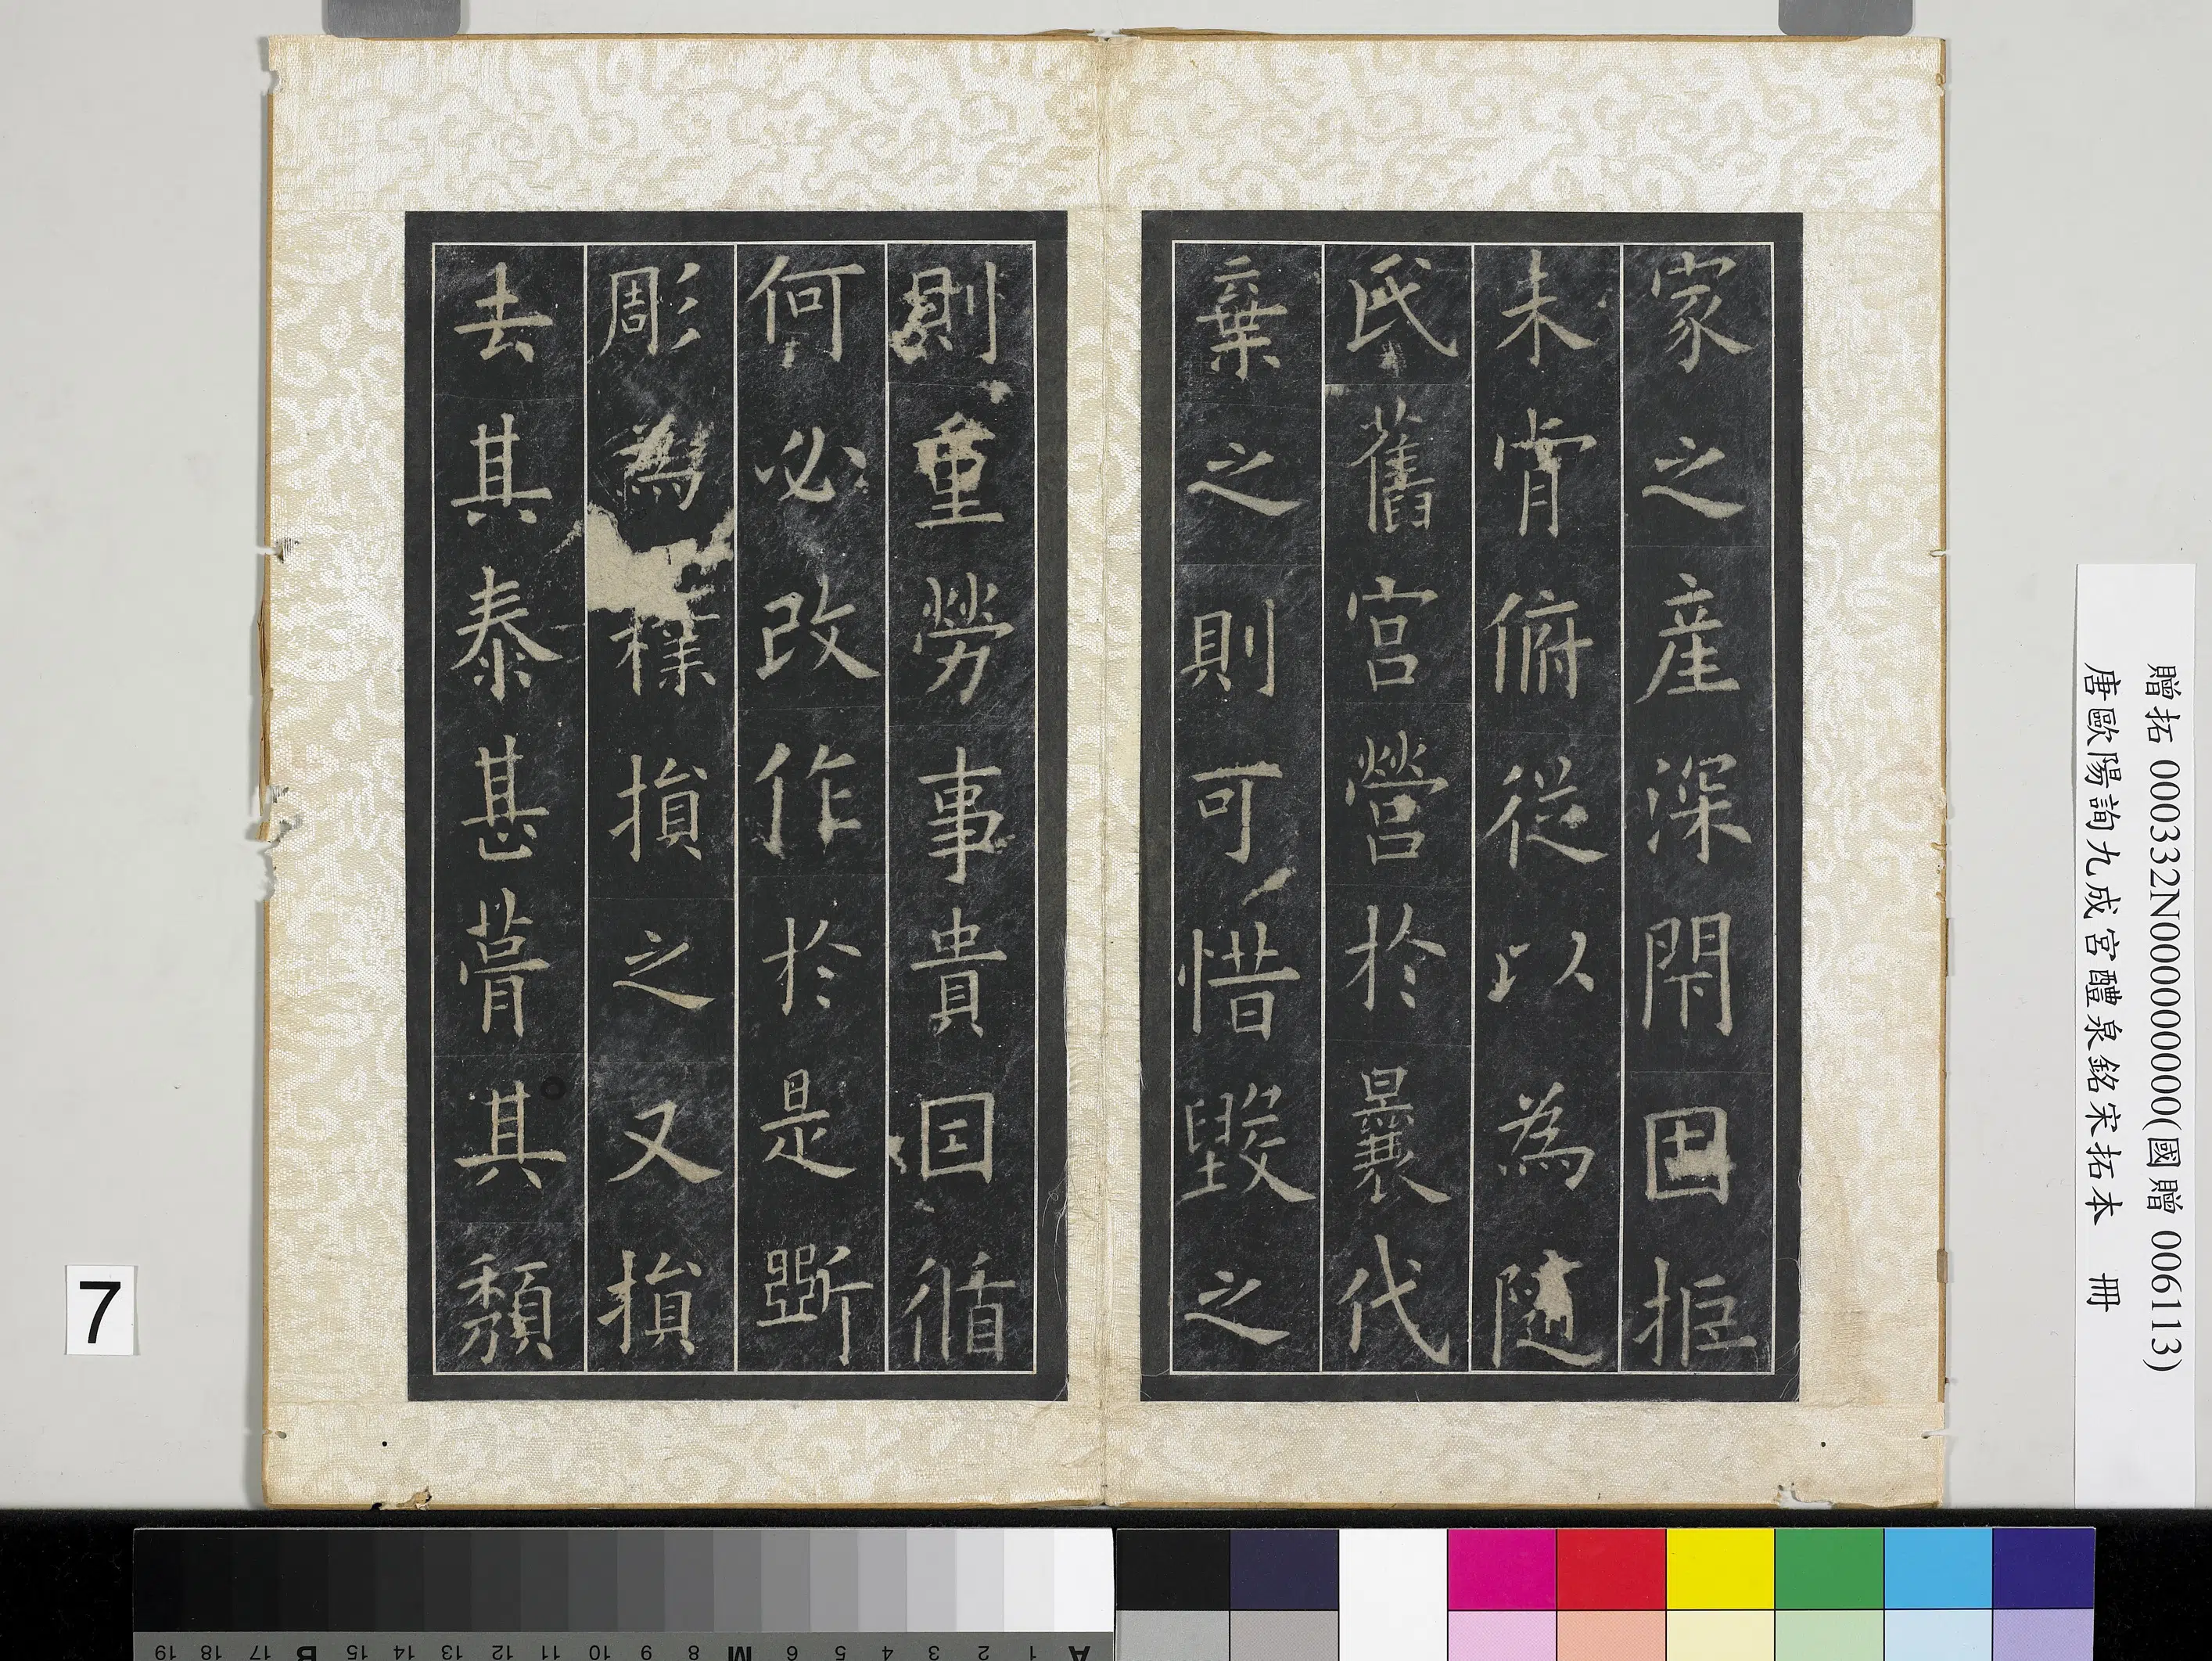 家之産深閇固拒
未肯俯從以為隨
氏舊宮營於曩代
棄之則可惜毀之
則重勞事貴因循
何必改作於是斲
彫為樸損之又損
去其泰甚葺其頹
贈拓 000332N000000000(國贈 006113)
唐歐陽詢九成宮醴泉銘宋拓本 冊
7
A 1 2 3 4 5 6 M 8 9 10 11 12 13 14 15 B 17 18 19